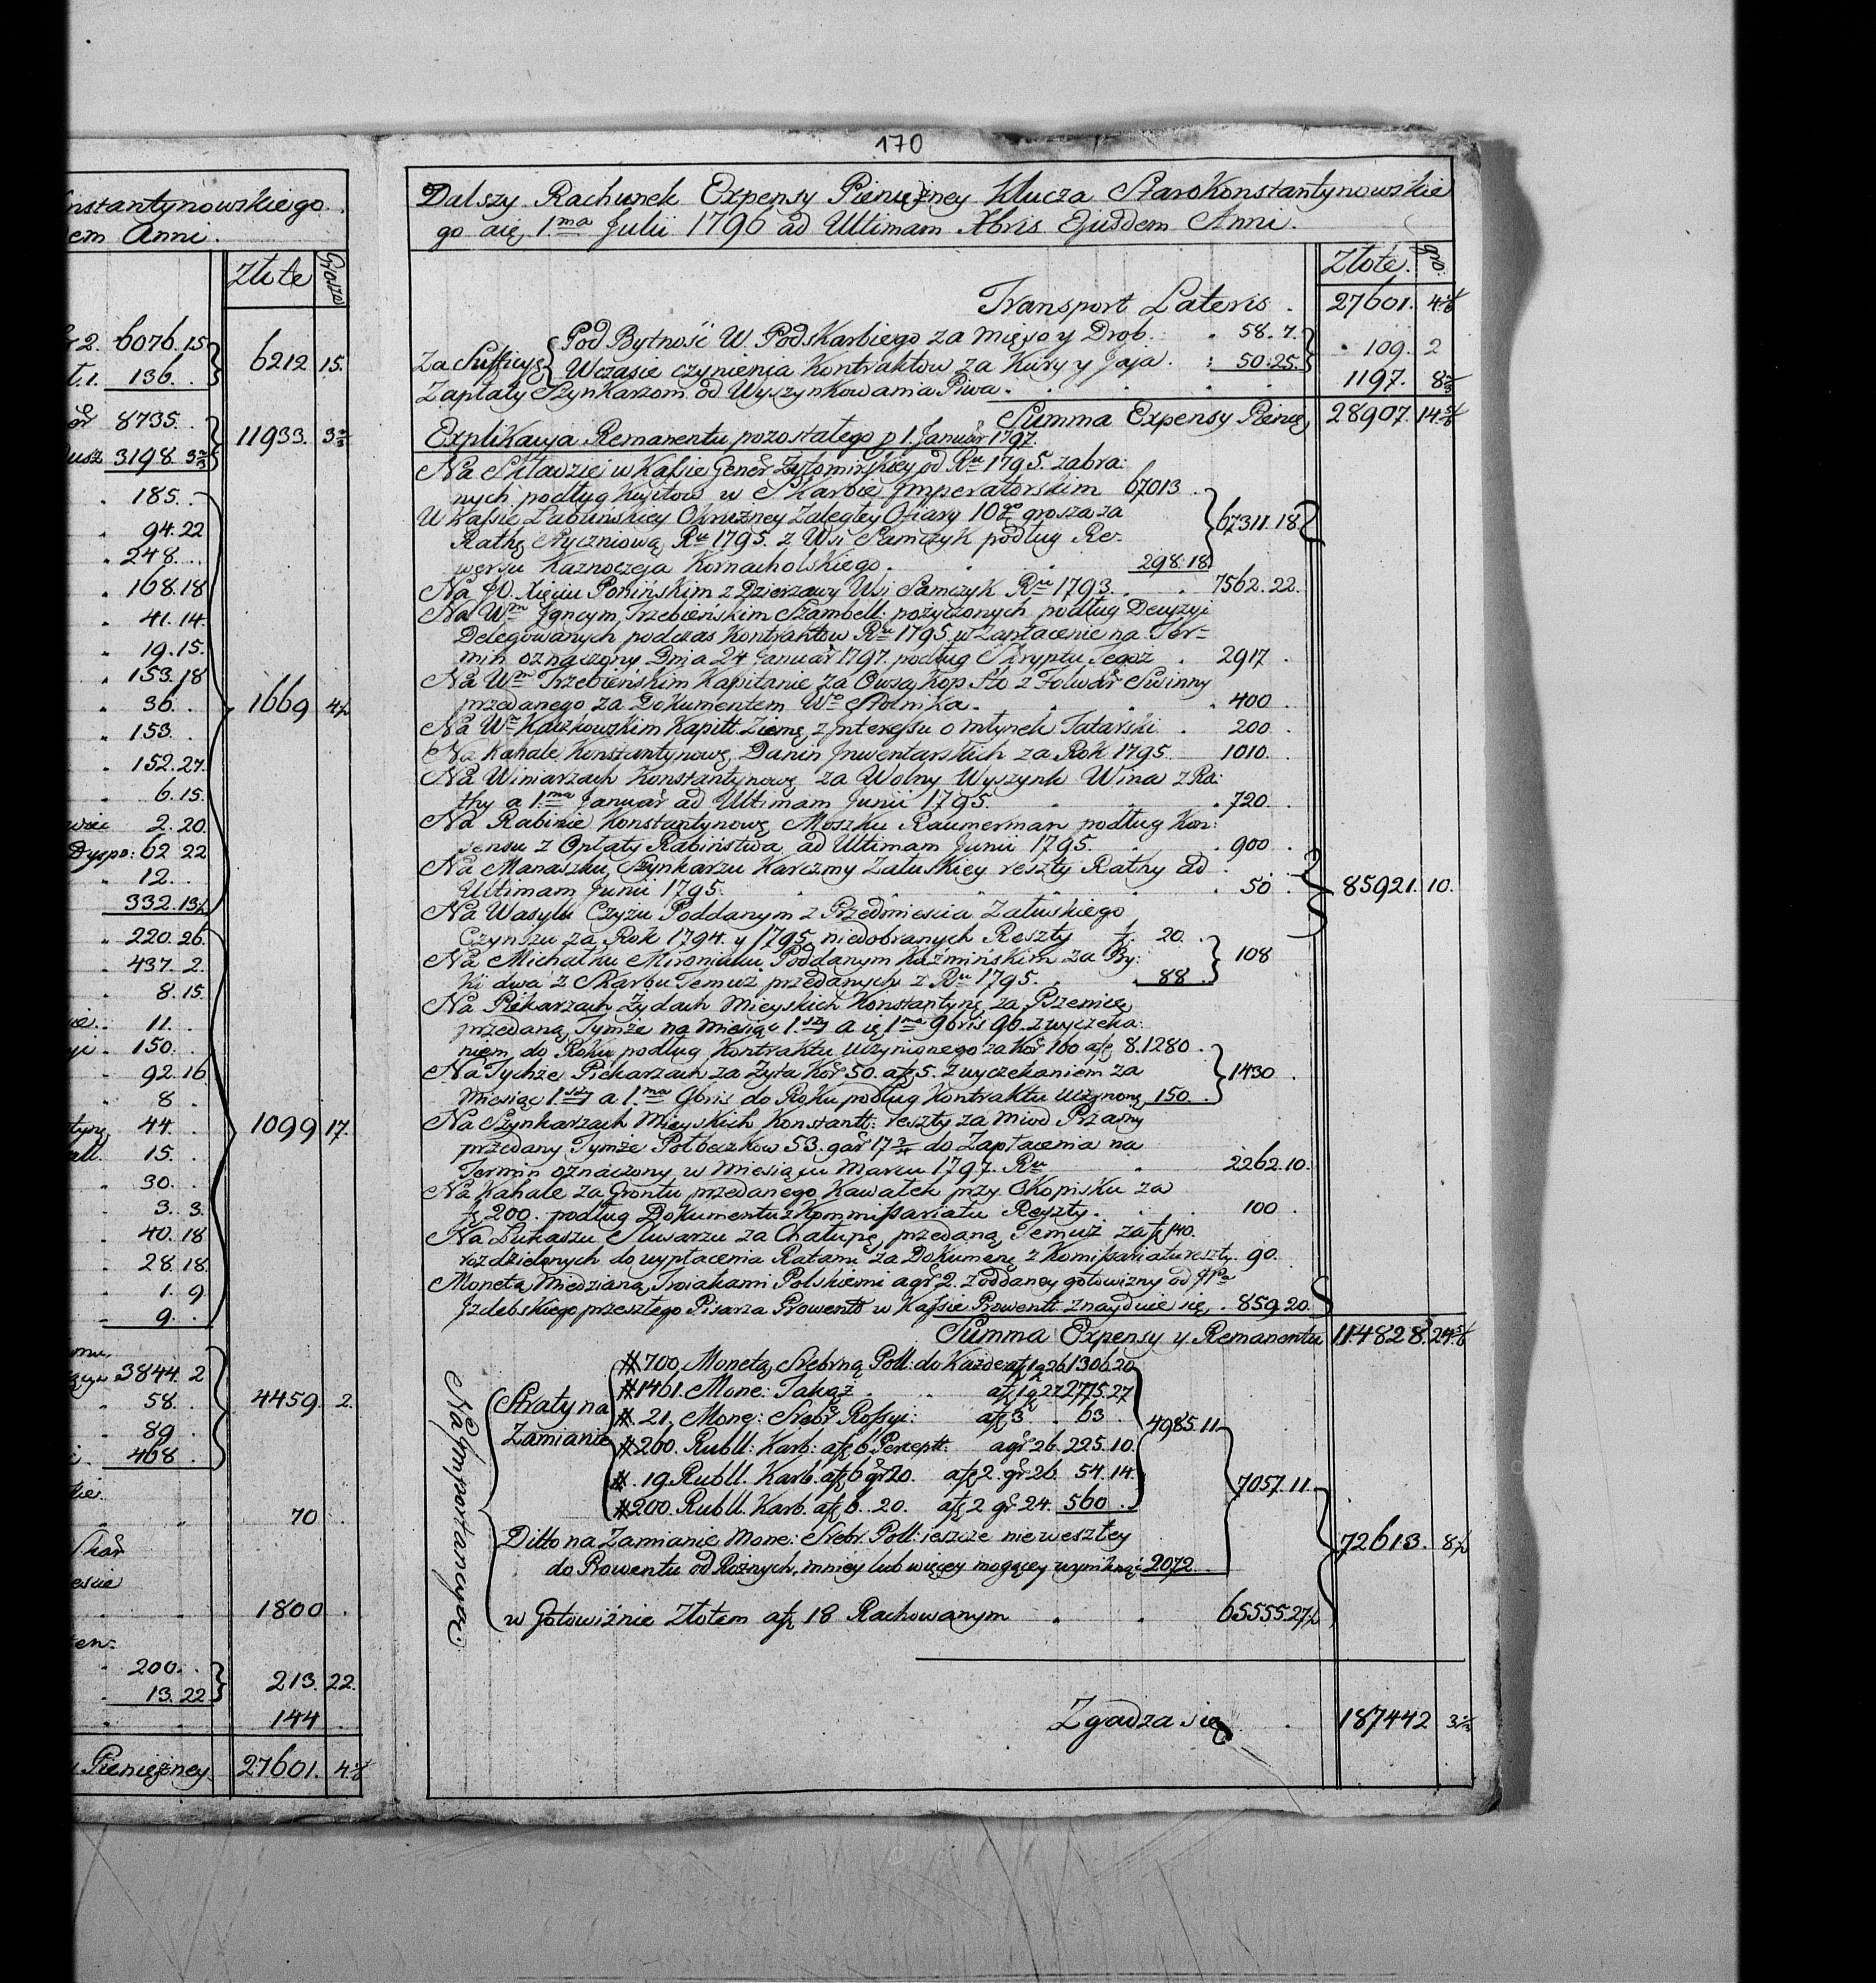 170
nstantynowskiego
em Anni.
Złote
Grosze
2. 6076.15
6212 15.
t.1. 136.
8735.
11933. 3⅔
dusz 3198. 3⅔
185.
94.22
248.
168.18
41.14.
19.15.
153.18
36.
1669
153.
152.27.
6.15.
2.20.
Dyspo: 62 22
12.
332.13½
220.26.
437. 2.
8.15.
11.
150.
92.16
8.
44.
1099 17.
15.
30.
3. 3.
40.18
28.18.
1. 9
9.
3844. 2
58.
4459. 2.
89.
468.
70
1800
200.
213. 22.
13.22
144
Pieniężney. 27601.
Dalszy Rachunek Expensy Pienężney Klucza Starokonstantynowskie
go a 1.ma Julii 1796 ad Ultimam Xbris Ejusdem Anni.
Złote. gro.
Transport Lateris. 27601.
Pod Bytność W. Podskarbiego za Mięso y Drob. 58. 7.
Za Suffycyę 109. 2
Wczasie czynienia Kontraktow za Kury y Jaja. 50.25.
Zapłaty Szynkarzom od Wyszynkowania Piwa. 1197. 8⅔
Summa Expensy Pienię 28907. 14⅚
Explikacya Remanentu pozostałego p 1. Januar 1797.
Na Składzie w Kassie Gener Żytomirskiey od Ru 1795. zabra:
nych podług Kwitow w Skarbie Imperatorskim 67013.
W Kassie Łabuńskiey Okrużney Zaległey Ofiary 10go grosza za
67311.18.
Rathę Styczniową Ru 1795. z Wsi Samczyk podług Re-
wersu Kaznoczeja Kornacholskiego. 298.18.
Na JO. Xięciu Ponińskim z Dzierżawy Wsi Samczyk Ru 1793. 7562.22.
Na Wm Igncym Trzebieńskim Szambell: pożyczonych podług Decyzyi
Delegowanych podczas Kontraktow Ru 1795. w Zapłacenie na Ter-
min oznaczony Dnia 24 Januar 1797. podług Skryptu Tegoż. 2917.
Na Wm Trzebieńskim Kapitanie za Owsa Kop Sto z Folwar Swinny
przedanego za Dokumentem Wo Stolnika. 400.
Na Wm Kaczkowskim Kapitt. Ziemę z Interessu o młynek Tatarski. 200.
Na Kahale Konstantynowę Danin Inwentarskich za Rok 1795. 1010.
Na Winiarzach Konstantynowę za Wolny Wyszynk Wina z Ra:
thy a 1.ma Januar ad Ultimam Junii 1795. 720.
Na Rabinie Konstantynowę Moszku Raumerman podług Kon:
sensu z Opłaty Rabiństwa ad Ultimam Junii 1795. 900.
Na Manaszku Szynkarzu Karczmy Załuskiey reszty Rathy ad
Ultimam Junii 1795. 50. 85921. 10.
Na Wasylu Czyżu Poddanym z Przedmieścia Załuskiego
Czynszu za Rok 1794. y 1795 niedobranych Reszty 20.
108
Na Michałku Mironiuku Poddanym Kuźmińskim za By:
ki dwa z Skarbu Temuż przedanych z Ru 1795. 88.
Na Piekarzach Żydach Mieyskich Konstantynę za Pszenicę
przedaną Tymże na Miesiąc 1.szy a 1ma 9bris 96. z wyczeka:
niem do Roku podług Kontraktu uczynionego za Kor 160 a 8.1280.
1430.
Na Tychże Piekarzach za Żyta Kor 50. a 5. z wyczekaniem za
Miesiąc 1.szy a 1.ma 9bris do Roku podług Kontraktu uczynonę 150.
Na Szynkarzach Mieyskich Konstantt: reszty za Miod Przasny
przedany Tymże Połbeczkow 53. gar 17¾ do Zapłacenia na
Termin oznaczony w Miesiącu Marcu 1797. Ru 2262.10.
Na Kahale za Grontu przedanego Kawałek przy Okopisku za
200. podług Dokumentu z Kommissariatu Reszty. 100.
Na Łukaszu Slusarzu za Chałupę przedaną Temuż za 140.
rozdzielonych do wypłacenia Ratami za Dokumenę z Komissariatu reszty. 90.
Monetą Miedzianą Troiakami Polskiemi a gr 2. z oddaney gotowizny od
Jzdebskiego przeszłego Pisarza Prowentt w Kassie Prowentt znayduie się. 859.20.
Summa Expensy y Remanentu 114828. 24⅚
Na Importancyą
Straty na Zamianie
# 700. Monetą Srebrną Poll: do Każdego a 1 g 26. 1306.20
# 1461. Mone: Takąż a 1 g 27. 2775.27
# 21. Monę: Srebr Rossyi: a 3. 63.
4985.11.
# 260. Rubll: Karb: a 6 Percept: a gr 26. 225.10.
# 19. Rubll. Karb. a 6 gr 20. a 2. gr 26. 54.14.
7057.11.
# 200. Rubll. Karb. a 6. 20. a 2 gr 24. 560.
Ditto na Zamianie Mone: Srebr. Poll: ieszcze nieweszłey
72613. 8½
do Prowentu od Rożnych, mniey lub więcey mogącey wyniknąć 2072.
w Gotowiźnie Złotem a 18 Rachowanym 65555.27½
Zgadza się 187442 3⅓